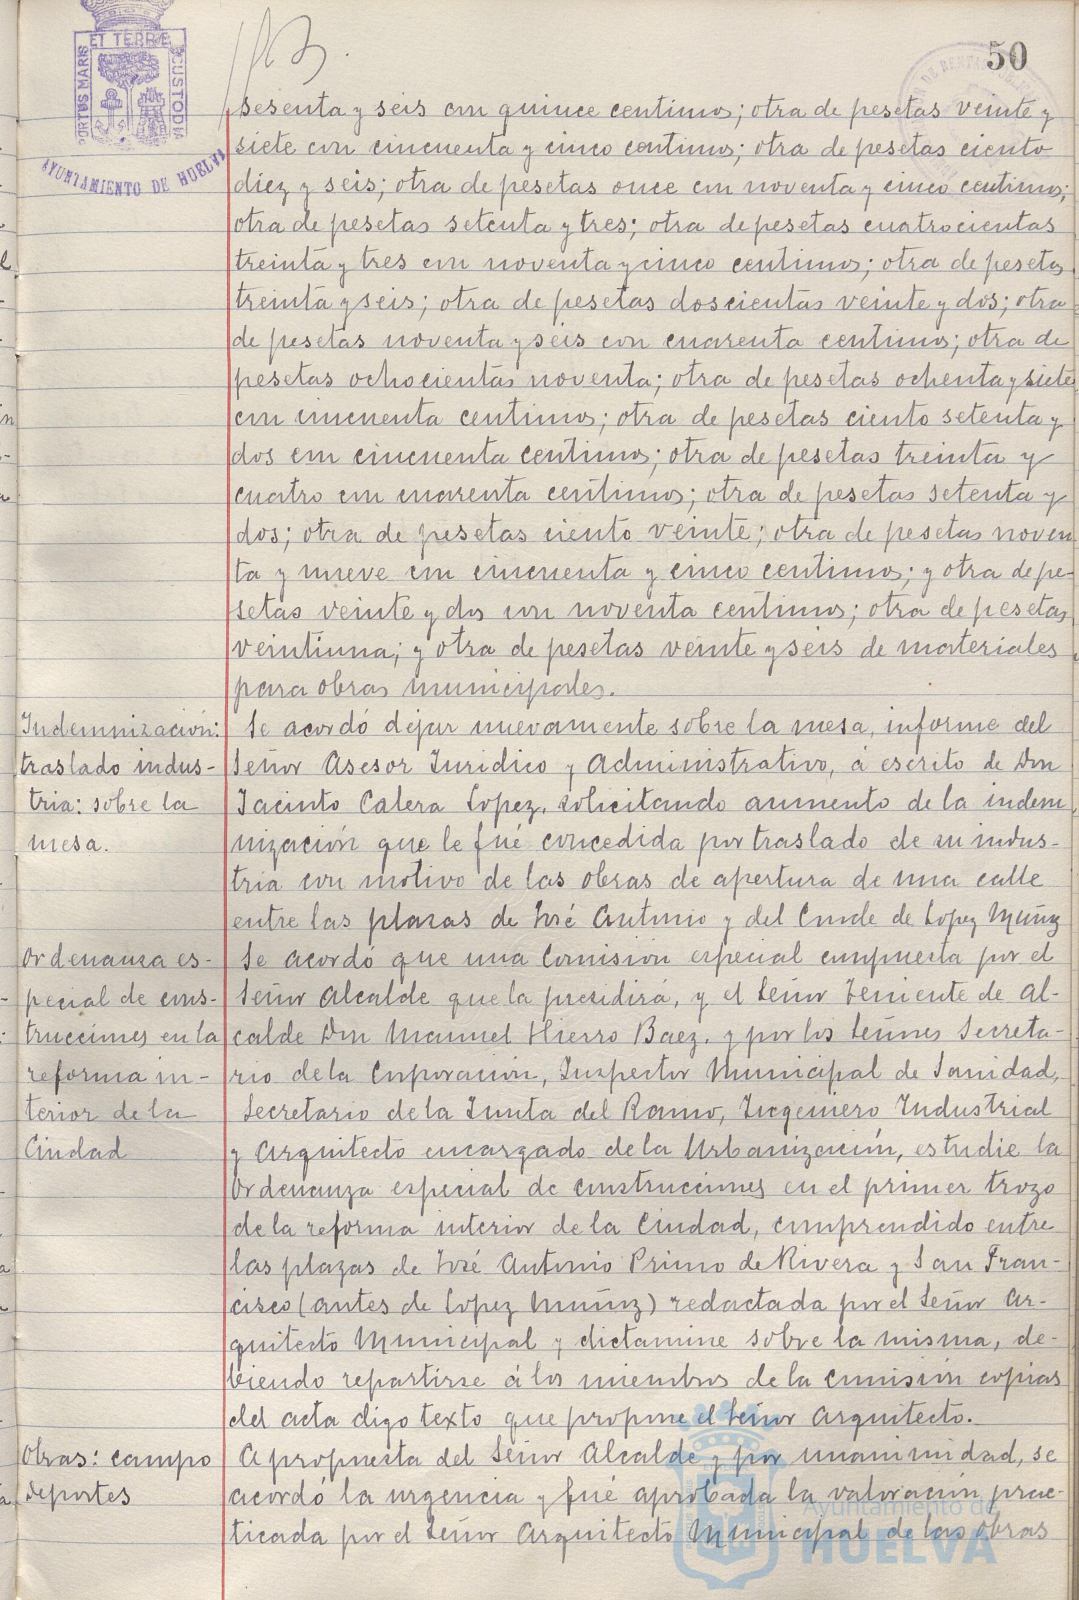 50
PORTUS MARIS ET TERRE CUSTODIA
AYUNTAMIENTO DE HUELVA
sesenta y seis con quince centimos; otra de pesetas veinte y
siete con cincuenta y cinco centimos; otra de pesetas ciento
diez y seis; otra de pesetas once con noventa y cinco centimos;
otra de pesetas setenta y tres; otra de pesetas cuatrocientas
treinta y tres con noventa y cinco centimos; otra de pesetas
treinta y seis; otra de pesetas doscientas veinte y dos; otra
de pesetas noventa y seis con cuarenta centimos; otra de
pesetas ochocientas noventa; otra de pesetas ochenta y siete
con cincuenta centimos; otra de pesetas ciento setenta y
dos con cincuenta centimos; otra de pesetas treinta y
cuatro con cuarenta centimos; otra de pesetas setenta y
dos; otra de pesetas ciento veinte; otra de pesetas noven
ta y nueve con cincuenta y cinco centimos; y otra de pe-
setas veinte y dos con noventa centimos; otra de pesetas
veintiuna; y otra de pesetas veinte y seis de materiales
para obras municipales.
Indemnización:
traslado indus-
tria: sobre la
mesa.
Se acordó dejar nuevamente sobre la mesa, informe del
Señor Asesor Juridico y Administrativo, á escrito de Don
Jacinto Calera Lopez, solicitando aumento de la indem
nización que le fué concedida por traslado de su indus-
tria con motivo de las obras de apertura de una calle
entre las plazas de José Antonio y del Conde de Lopez Muñoz
Ordenanza es-
pecial de cons-
trucciones en la
reforma in-
terior de la
Ciudad
Se acordó que una Comisión especial compuesta por el
Señor Alcalde que la presidirá, y el Señor Teniente de Al-
calde Don Manuel Hierro Baez, y por los Señores Secreta-
rio de la Corporación, Inspector Municipal de Sanidad,
Secretario de la Junta del Ramo, Ingeniero Industrial
y Arquitecto encargado de la Urbanización, estudie la
Ordenanza especial de construcciones en el primer trozo
de la reforma interior de la Ciudad, comprendido entre
las plazas de José Antonio Primo de Rivera y San Fran-
cisco (antes de Lopez Muñoz) redactada por el Señor Ar-
quitecto Municipal y dictamine sobre la misma, de-
biendo repartirse á los miembros de la comisión copias
del acta digo texto que propone el Señor Arquitecto.
Obras: campo
deportes
A propuesta del Señor Alcalde y por unanimidad, se
acordó la urgencia y fué aprobada la valoración prac-
ticada por el Señor Arquitecto Municipal de las obras
Ayuntamiento de
HUELVA